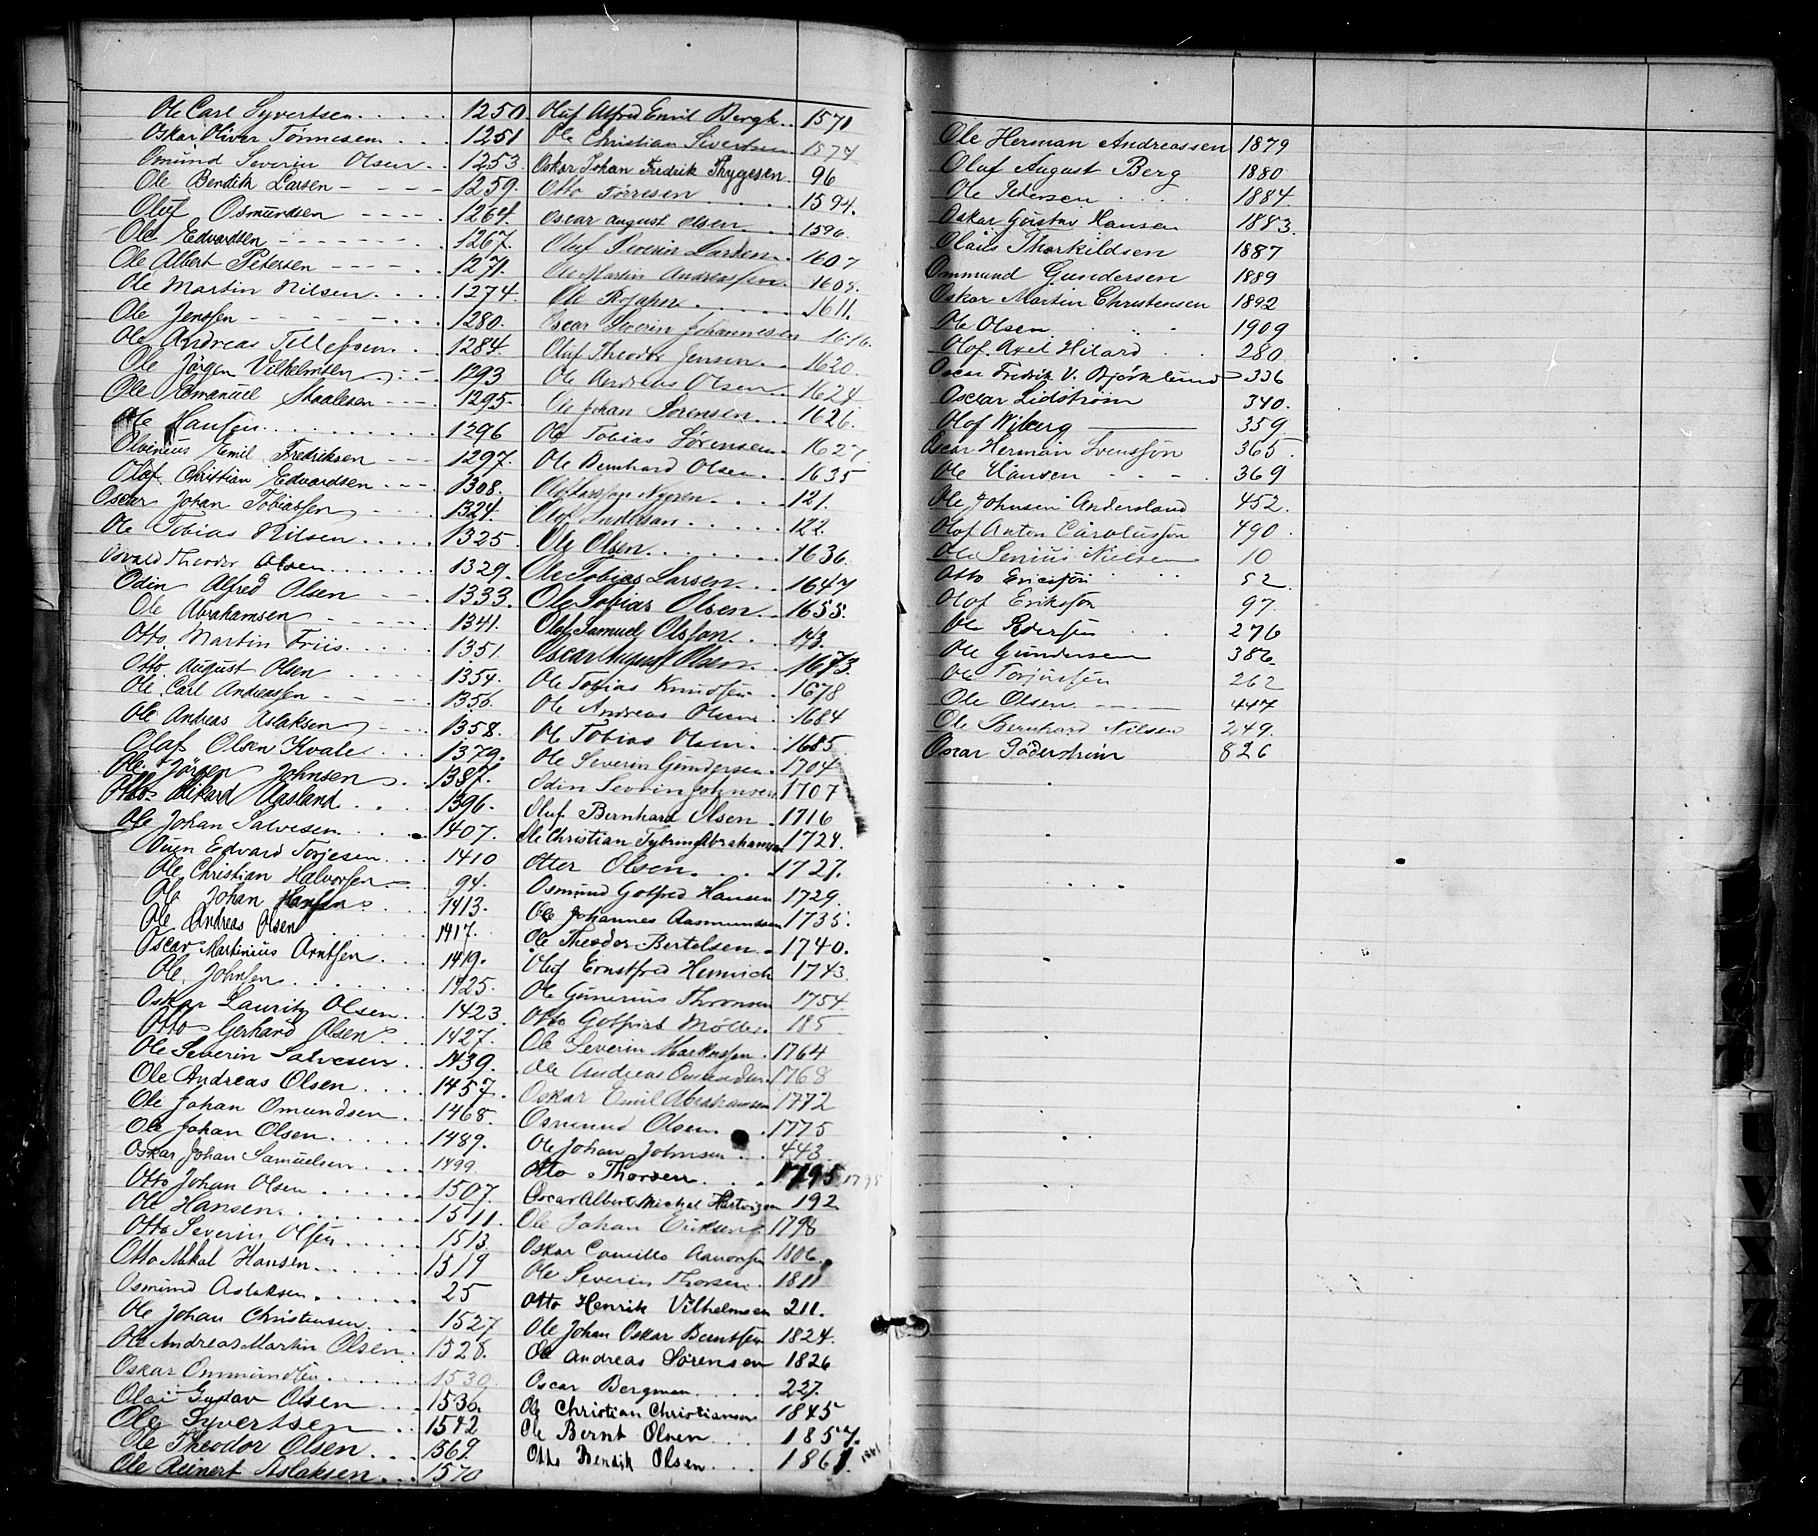 Ole Carl Syvertsen 1250
Oskar Oliver Tönnesen 1251
Omund Severin Olsen 1253
Ole Bendik Larsen 1259.
Oluf Osmundsen 1264.
Ole Edvardsen 1267.
Ole Albert Petersen 1271.
Ole Martin Nilsen 1274.
Ole Jenssen 1280.
Ole Andreas Tellefsen 1284.
Ole Jörgen Vilhelmsen 1293
Ole Emanuel Staalesen 1295.
Ole Hansen 1296
Olsenius Emil Fredriksen 1297.
Olaf Christian Edvardsen 1308.
Oscar Johan Tobiassen 1324.
Ole Tobias Nilsen 1325.
Osvald Theodor Olsen 1329.
Odin Alfred Olsen 1333.
Ole Abrahamsen 1341.
Otto Martin Friis 1351.
Otto August Olsen 1354.
Ole Carl Andreassen 1356.
Ole Andreas Aslaksen 1358.
Olaf Olsen Kvale 1379.
Ole Jörgen Johnsen 1387.
Otto Rikard Aasland 1396.
Ole Johan Salvesen 1407.
Ouen Edvard Torjesen 1410
Ole Christian Halvorsen 94.
Ole Johan Hansen 1413.
Ole Andreas Olsen 1417.
Oscar Martinius Arntsen 1419.
Ole Johnsen 1425.
Oskar Lauritz Olsen 1423.
Otto Gerhard Olsen 1427.
Ole Severin Salvesen 1439.
Ole Andreas Olsen 1457.
Ole Johan Omundsen 1468.
Ole Johan Olsen 1489.
Oskar Johan Samuelsen 1499.
Otto Johan Olsen 1507.
Ole Hansen 1511.
Otto Severin Olsen 1513.
Otto Mikal Hansen 1519
Osmund Aslaksen 25
Ole Johan Christensen 1527
Ole Andreas Martin Olsen 1528.
Oskar Ommundsen 1530
Olai Gustav Olsen 1536.
Ole Syvertsen 1542
Ole Theodor Olsen 1569.
Ole Reinert Aslaksen 1570
Oluf Alfred Emil Bergh 1571
Ole Christian Sivertsen 1574
Oskar Johan Fredrik Thygesen 96
Otto Törresen 1594.
Oscar August Olsen 1596.
Oluf Severin Larsen 1607
Ole Martin Andreassen 1609.
Ole 1611.
Oscar Severin Johannesen 1616.
Oluf Theodor Jensen 1620.
Ole Andreas Olsen 1624
Ole Johan Sörensen 1626.
Ole Tobias Sörensen 1627.
Ole Bernhard Olsen 1635
Nygren 121.
Olof Anderson 122.
Ole Olsen 1636.
Ole Tobias Larsen 1647
Ole Tobias Olsen 1655.
Olof Samuel Olsson 143.
Oscar August Olsen 1673.
Ole Tobias Knudsen 1678
Ole Andreas Olsen 1684
Ole Tobias Olsen 1685
Ole Severin Gundersen 1704
Odin Severin Johnsen 1707
Oluf Bernhard Olsen 1716
Ole Christian Tybring Abrahamsen 1724.
Otter Olsen 1727.
Osmund Gotfred Hansen 1729.
Ole Johannes Aasmundsen 1735.
Ole Theodor Bertelsen 1740.
Oluf Ernstfred Heinrich 1743.
Ole Gunerius Thronsen 1754.
Otto Gotfried Möller 185
Ole Severin Markussen 1764
Ole Andreas Osmundsen 1768
Oskar Emil Abrahamsen 1772
Osmund Olsen 1775
Ole Johan Johnsen 443.
Otto Thorsen 1795 1795
Oscar Albert Michal Hartvigsen 192.
Ole Johan Eriksen 1798
Oskar Camillo Aanonsen 1806.
Ole Severin Thorsen 1811
Otto Henrik Vilhelmsen 211.
Ole Johan Oskar Berntsen 1824.
Ole Andreas Sörensen 1826
Oscar Bergman 227.
Ole Christian Christiansen 1845
Ole Bernt Olsen 1857.
Otto Bendik Olsen 1861. 1861
Ole Herman Andreassen 1879
Oluf August Berg 1880.
Ole Pedersen 1884.
Oskar Gustav Hansen 1883.
Olaus Thorkildsen 1887
Ommund Gundersen 1889
Oskar Martin Christensen 1892
Ole Olsen 1909
Olof Axel Hilard 280.
Oscar Fredrik V. Björklund 336
Oscar Lidström 340.
Olof Wiberg 359.
Oscar Herman Svensson 365.
Ole Hansen 369
Ole Johnsen Andersland 452.
Olof Anton Carolusson 490.
Ole Severin Nielsen 10
Otto Ericsson 52
Olof Eriksson 97.
Ole Pedersen 276
Ole Gundersen 386.
Ole Torjussen 262
Ole Olsen 447
Ole Bernhard Nilsen 249.
Oscar Söderström 826
U
V
X
Z